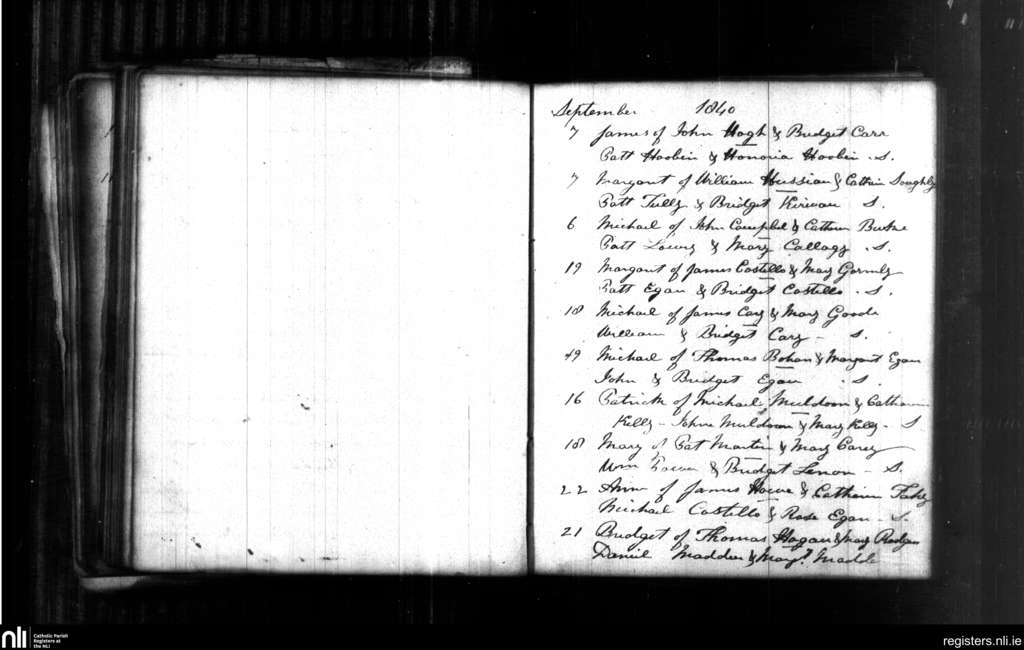 September 1840
7 James of John Hogh & Bridget Carr
Patt Hoobin & Honoria Hoobin . S.
7 Margaret of William Hussian & Cathrin
Patt Tully & Bridget Kirwan S.
6 Michael of John Campbel & Cathern Burke
Patt Lowry & Mary Callagy . S.
19 Margaret of James Costello & Mary Gormly
Patt Egan & Bridget Costello . S.
18 Michael of James Cary & Mary Goode
William & Bridget Cary - S.
19 Michael of Thomas Bohan & Margaret Egan
John & Bridget Egan . S.
16 Patrick of Michael Muldoon & Catharine
Kelly - John Muldoon & Mary Kelly - S
18 Mary of Pat Martin & Mary Carey
Wm & Bridget Lenon - S.
22 Ann of James & Catherin Fahy
Michael Costello & Rose Egan - S.
21 Bridget of Thomas Hogan & Mary
Daniel Madden & Margt. Madde
nli
Catholic Parish
Registers at
the NLI
registers.nli.ie